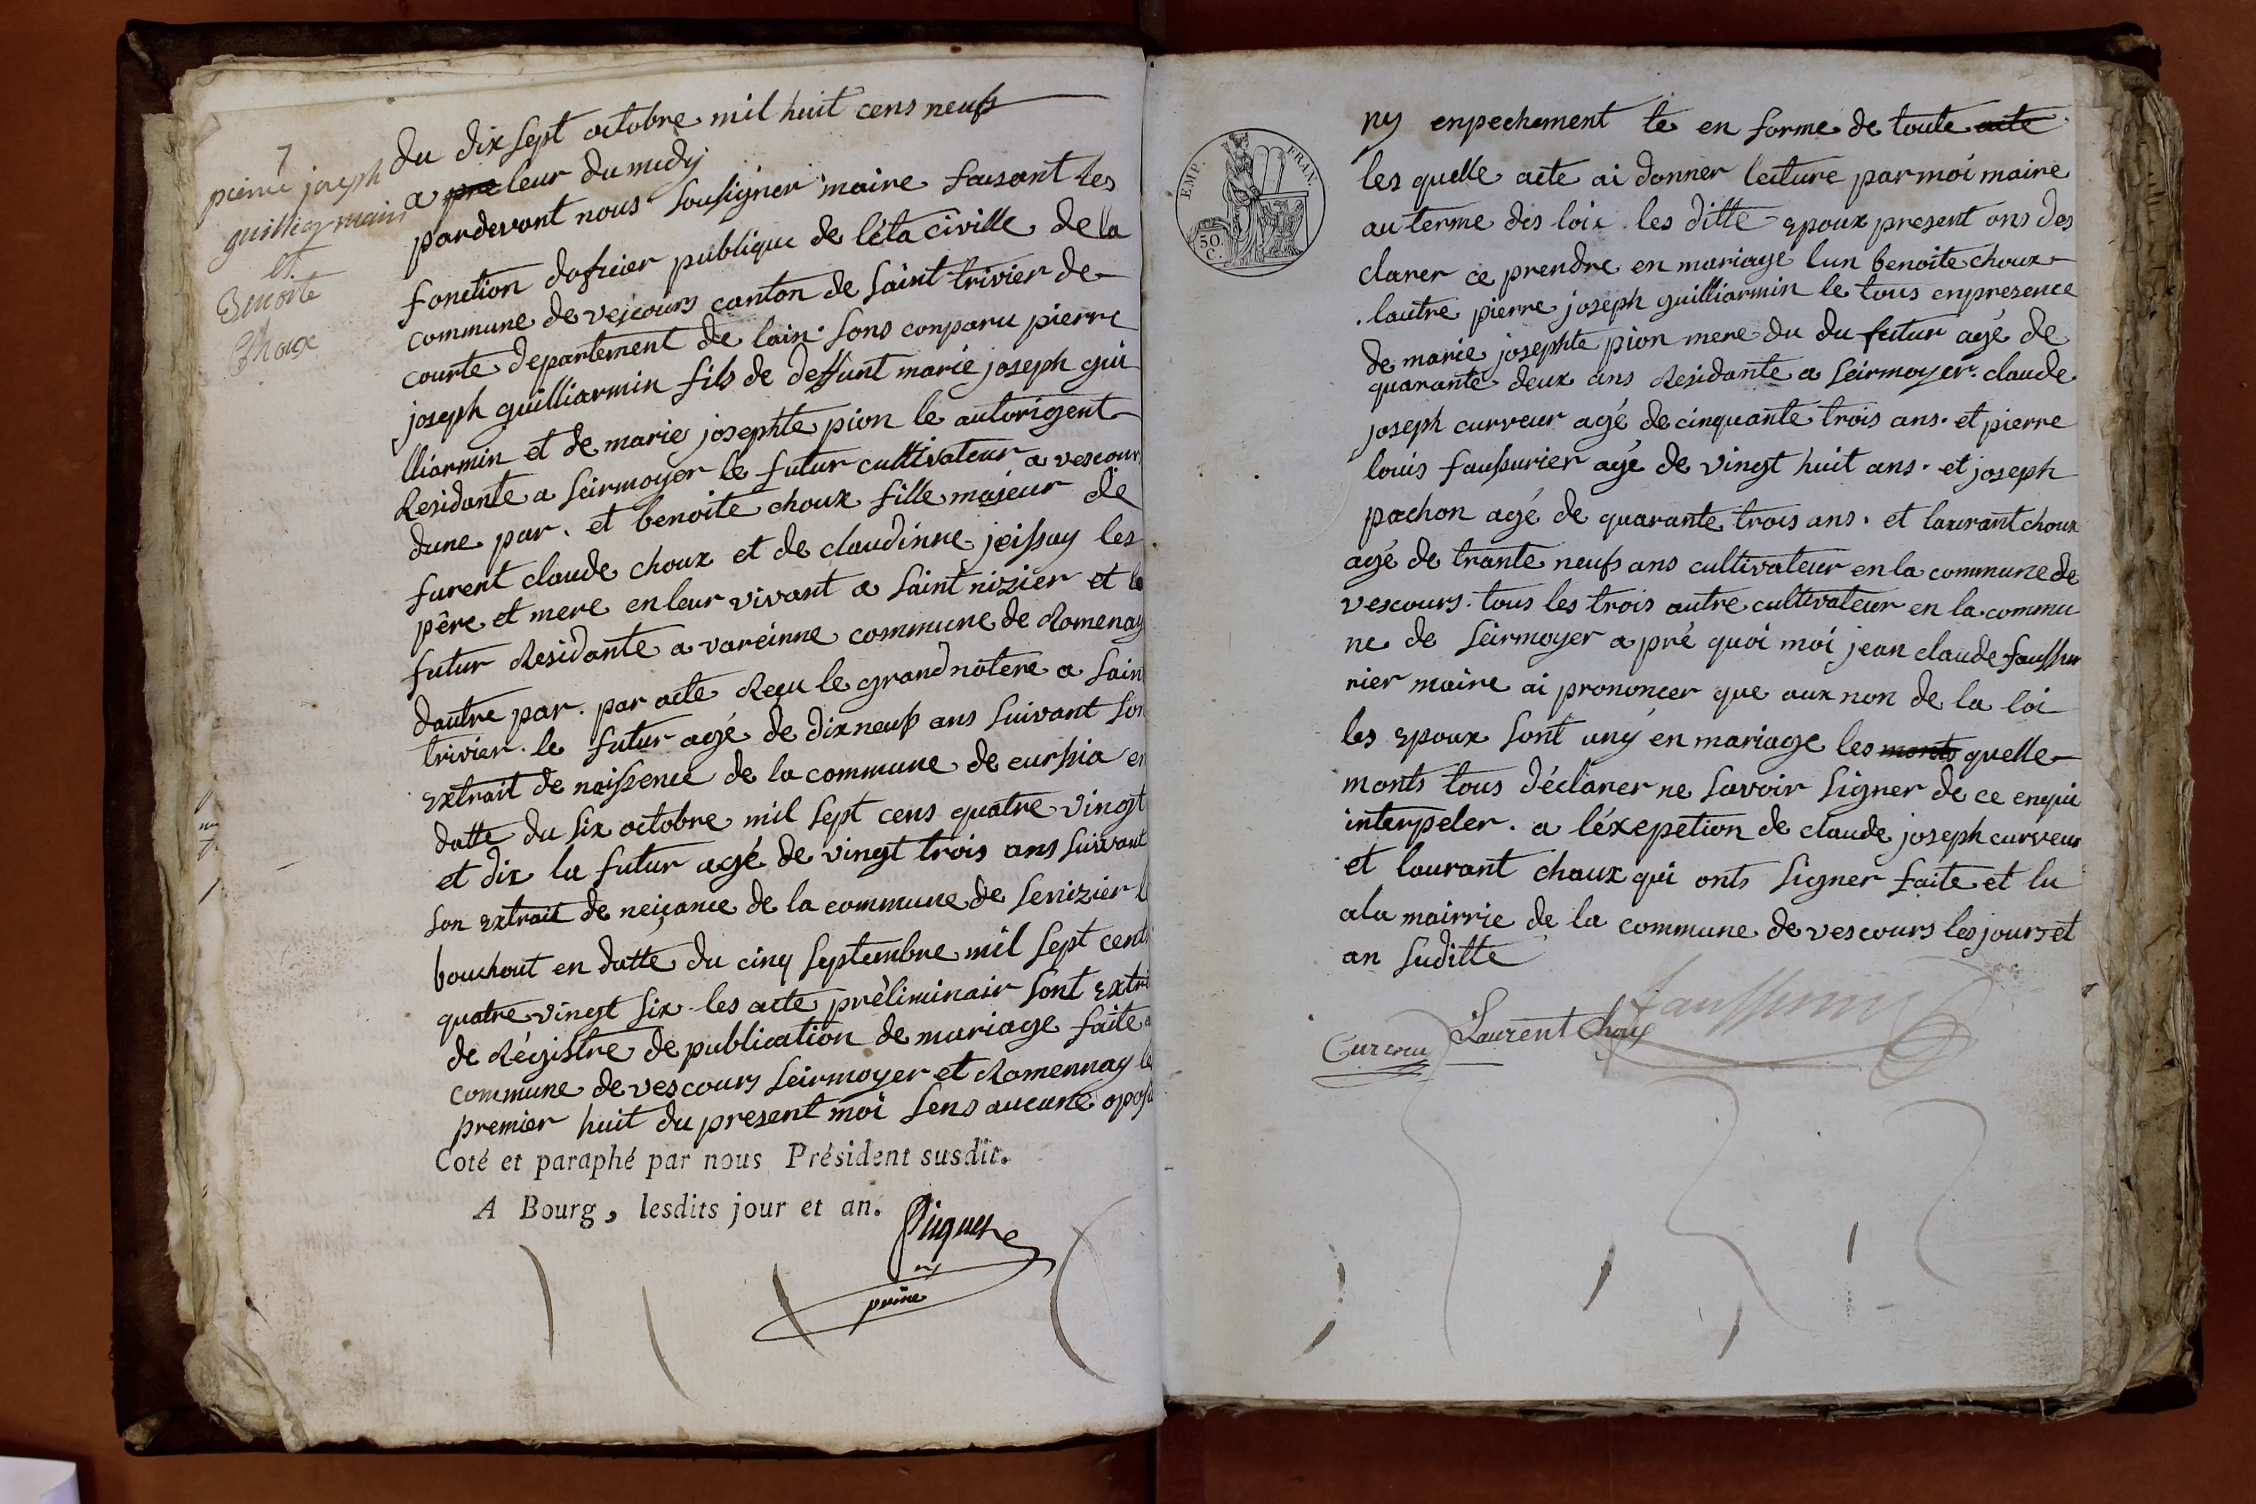 7
pierre joseph
guilliarmain
et
Benoite
Choux
du dix sept octobre mil huit cens neufs
a pre leur du midy
pardevant nous sousigner maire faisant les
fonction doficier publique de léta civille de la
commune de vescours canton de saint trivier de
courte departement de lain. sons conparu pierre
joseph guilliarmin fils de deffunt marie joseph gui
lliarmin et de marie josephte pion le autorigent
Residante a seirmoyer le futur cultivateur a vescours
dune par. et benoite choux fille majeur de
furent claude choux et de claudinne jeissay les
père et mere en leur vivant a saint nizier et la
futur Residante a vareinne commune de Romenay
dautre par. par acte Reçu le grand notere a sain
trivier. le futur agé de dix neufs ans suivant son
extrait de naissence de la commune de curssia en
datte du six octobre mil sept cens quatre vingt
et dix la futur agé de vingt trois ans suivant
son extrait de neiçance de la commune de senizier le
bouchout en datte du cinq septembre mil sept cents
quatre vingt six. les acte préliminair sont extrai
de Régistre de publication de mariage faite a
commune de vescours seirmoyer et Romennay le
premier huit du present moi sens aucune oposi
Coté et paraphé par nous Président susdit.
A Bourg, lesdits jour et an.
Picquet
EMP. FRAN.
50.
C.
ny enpechement te en forme de toute acte
les quelle acte ai donner lecture par moi maire
au terme des loix. les ditte epoux present ons des
clarer ce prendre en mariage lun benoite choux
. lautre pierre joseph guilliarmin le tous enpresence
de marie josephte pion mere du du futur agé de
quarante deux ans Residante a seirmoyer. claude
joseph curveur agé de cinquante trois ans. et pierre
louis faussurier agé de vingt huit ans. et joseph
pochon agé de quarante trois ans. et laurant choux
agé de trante neufs ans cultivateur en la commune de
vescours. tous les trois autre cultivateur en la commu
ne de seirmoyer a pré quoi moi jean claude faussu
rier maire ai prononcer que aux non de la loi
les epoux sont uny en mariage les monts quelle
monts tous déclarer ne savoir signer de ce enquis
interpeler. a léxepetion de claude joseph curveur
et laurant choux qui onts signer faite et lu
a la mairrie de la commune de vescours les jours et
an suditte
faussurier
Curveur Laurent Choux